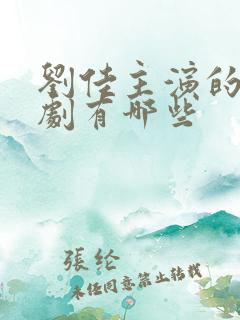 劉佳主演的
劇有哪些
張纶
未经同意禁止转载